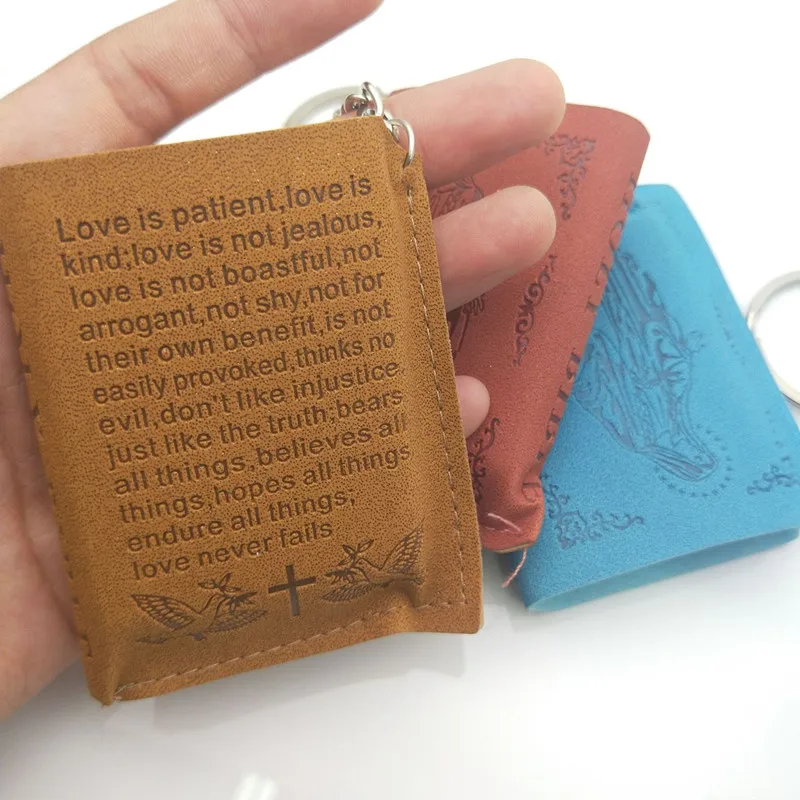 Love is patient,love is
kind;love is not jealous,
love is not boastful,not
arrogant,not shy,not for
their own benefit,is not
easily provoked,thinks no
evil,don't like injustice,
just like the truth;bears
all things,believes all
things,hopes all things
endure all things;
love never fails
HOLY BIBLE